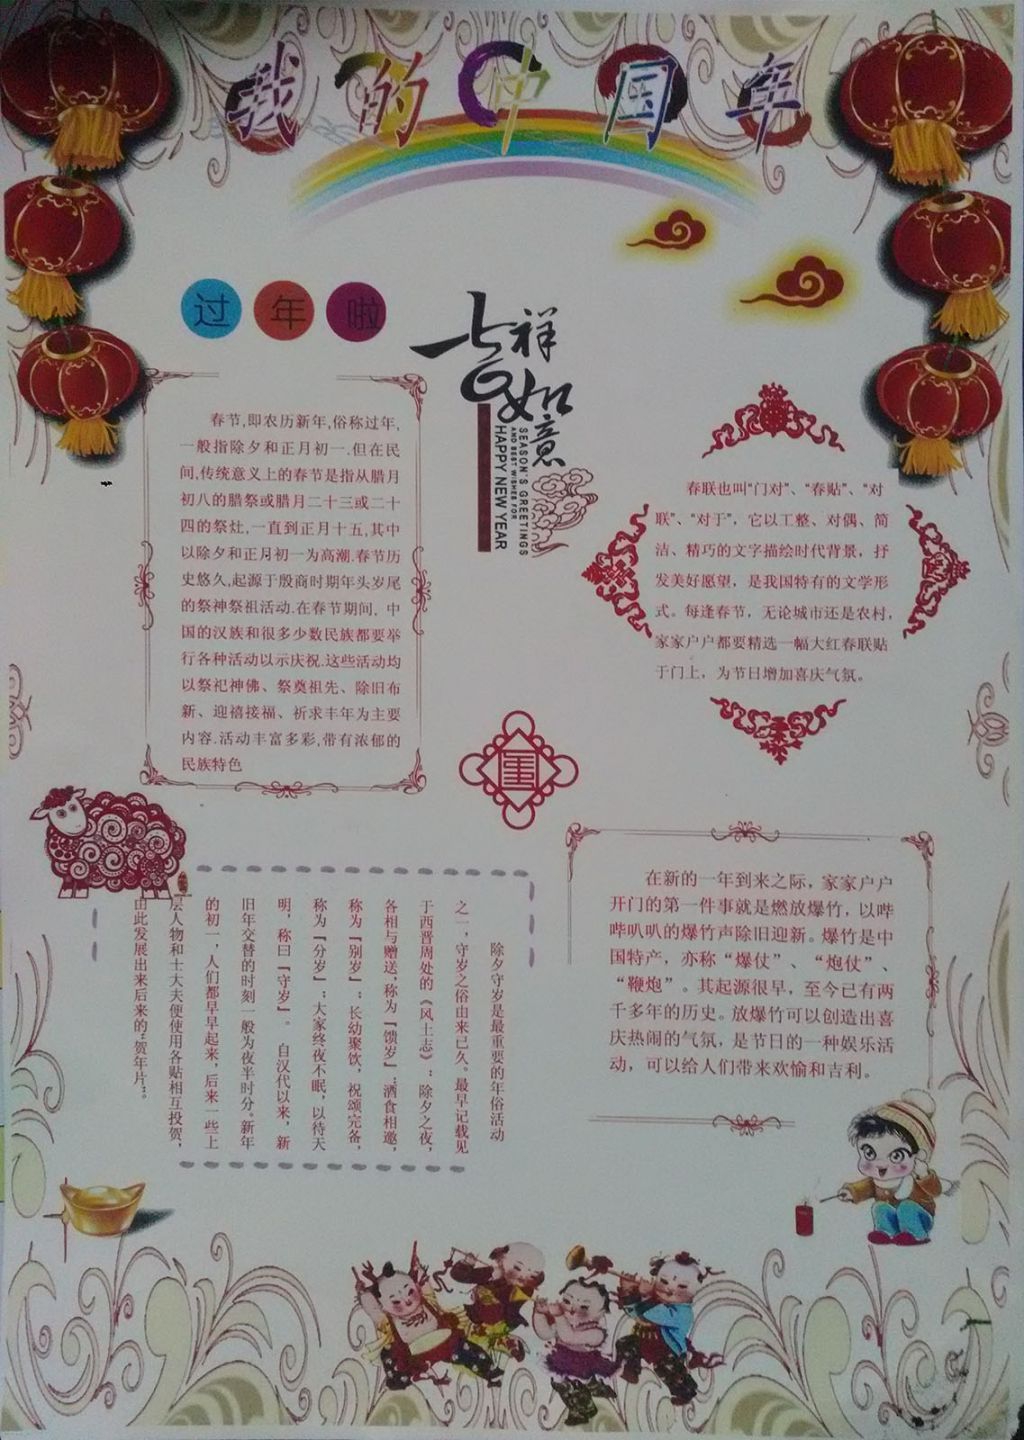 我的中国年
过年啦
吉祥如意
SEASON'S GREETINGS
AND BEST WISHES FOR
HAPPY NEW YEAR
春节,即农历新年,俗称过年,
一般指除夕和正月初一.但在民
间,传统意义上的春节是指从腊月
初八的腊祭或腊月二十三或二十
四的祭灶,一直到正月十五,其中
以除夕和正月初一为高潮.春节历
史悠久,起源于殷商时期年头岁尾
的祭神祭祖活动.在春节期间, 中
国的汉族和很多少数民族都要举
行各种活动以示庆祝.这些活动均
以祭祀神佛、祭奠祖先、除旧布
新、迎禧接福、祈求丰年为主要
内容.活动丰富多彩,带有浓郁的
民族特色
春联也叫“门对”、“春贴”、“对
联”、“对于”，它以工整、对偶、简
洁、精巧的文字描绘时代背景，抒
发美好愿望，是我国特有的文学形
式。每逢春节，无论城市还是农村，
家家户户都要精选一幅大红春联贴
于门上，为节日增加喜庆气氛。
除夕守岁是最重要的年俗活动
之一，守岁之俗由来已久。最早记载见
于西晋周处的《风土志》：除夕之夜，
各相与赠送，称为『馈岁』；酒食相邀，
称为『别岁』；长幼聚饮，祝颂完备，
称为『分岁』；大家终夜不眠，以待天
明，称曰『守岁』。 自汉代以来，新
旧年交替的时刻一般为夜半时分。新年
的初一，人们都早早起来，后来一些上
层人物和士大夫便使用各贴相互投贺，
由此发展出来后来的"贺年片"。
在新的一年到来之际，家家户户
开门的第一件事就是燃放爆竹，以哔
哔叭叭的爆竹声除旧迎新。爆竹是中
国特产，亦称“爆仗”、“炮仗”、
“鞭炮”。其起源很早，至今已有两
千多年的历史。放爆竹可以创造出喜
庆热闹的气氛，是节日的一种娱乐活
动，可以给人们带来欢愉和吉利。